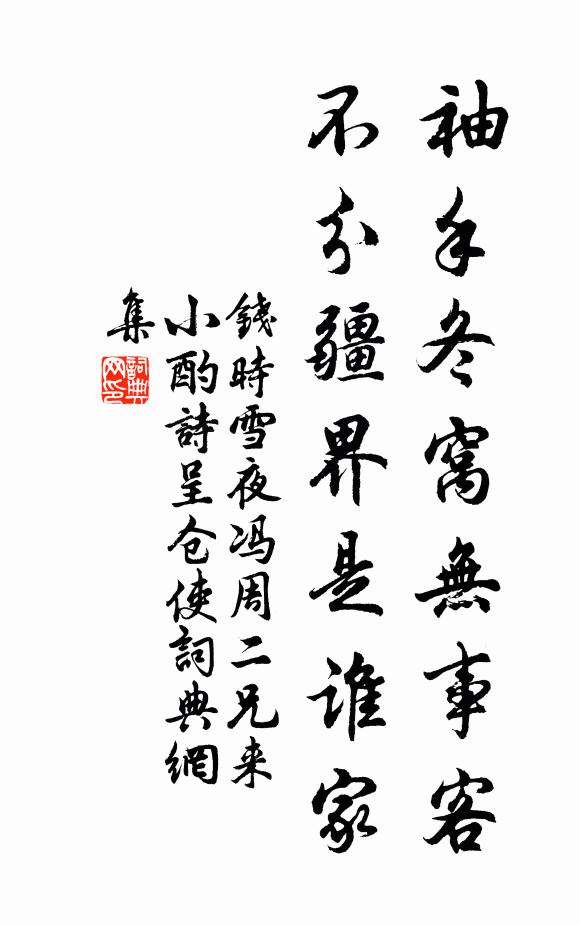 袖手冬窩無事客
不分疆界是誰家
錢時雪夜冯周二兄来
小酌詩呈仓使詞典網
集
詞典网印